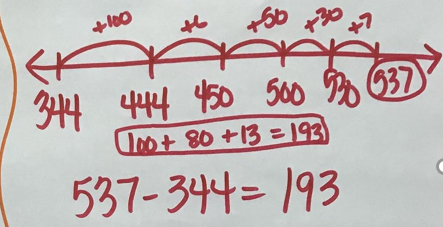 +100 +6 +50 +30 +7
344 444 450 500 530 537
100 + 80 + 13 = 193
537 - 344 = 193